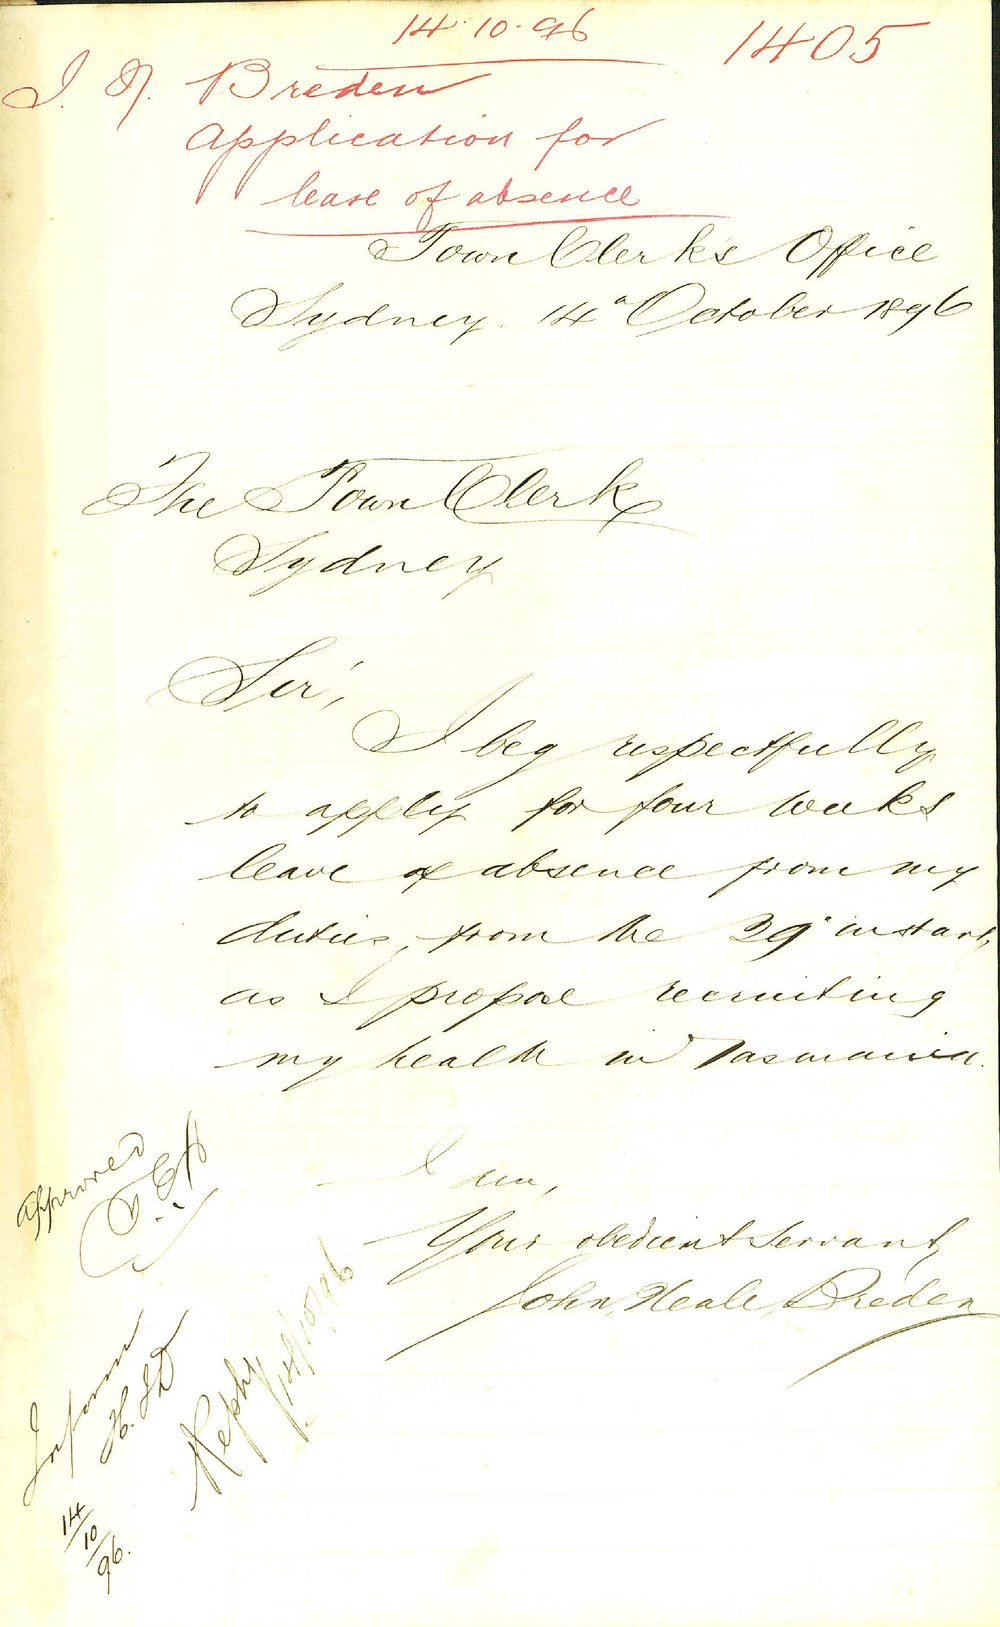 14.10.96
1405
J. N. Breden
Application for
leave of absence
Town Clerk's Office
Sydney. 14th October 1896
The Town Clerk
Sydney
Sir,
I beg respectfully
to apply for four weeks
leave of absence from my
duties, from the 29th instant,
as I propose recruiting
my health in Tasmania.
I am,
Your obedient servant,
John Neale Breden
Approved
Inform
H.S.D
14/10/96.
Reply
14/10/96